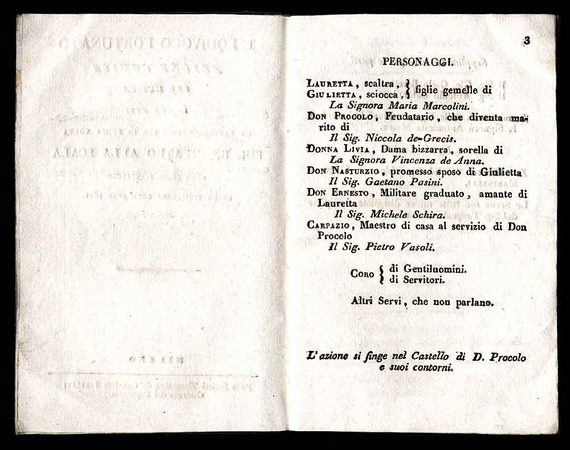 3
PERSONAGGI.
LAURETTA, scaltra, } figlie gemelle di
GIULIETTA, sciocca,
La Signora Maria Marcolini.
DON PROCOLO, Feudatario, che diventa ma-
rito di
Il Sig. Niccola de-Grecis.
DONNA LIVIA, Dama bizzarra, sorella di
La Signora Vincenza de Anna.
DON NASTURZIO, promesso sposo di Giulietta
Il Sig. Gaetano Pasini.
DON ERNESTO, Militare graduato, amante di
Lauretta
Il Sig. Michele Schira.
CARPAZIO, Maestro di casa al servizio di Don
Procolo
Il Sig. Pietro Vasoli.
CORO { di Gentiluomini.
di Servitori.
Altri Servi, che non parlano.
L'azione si finge nel Castello di D. Procolo
e suoi contorni.
MILANO